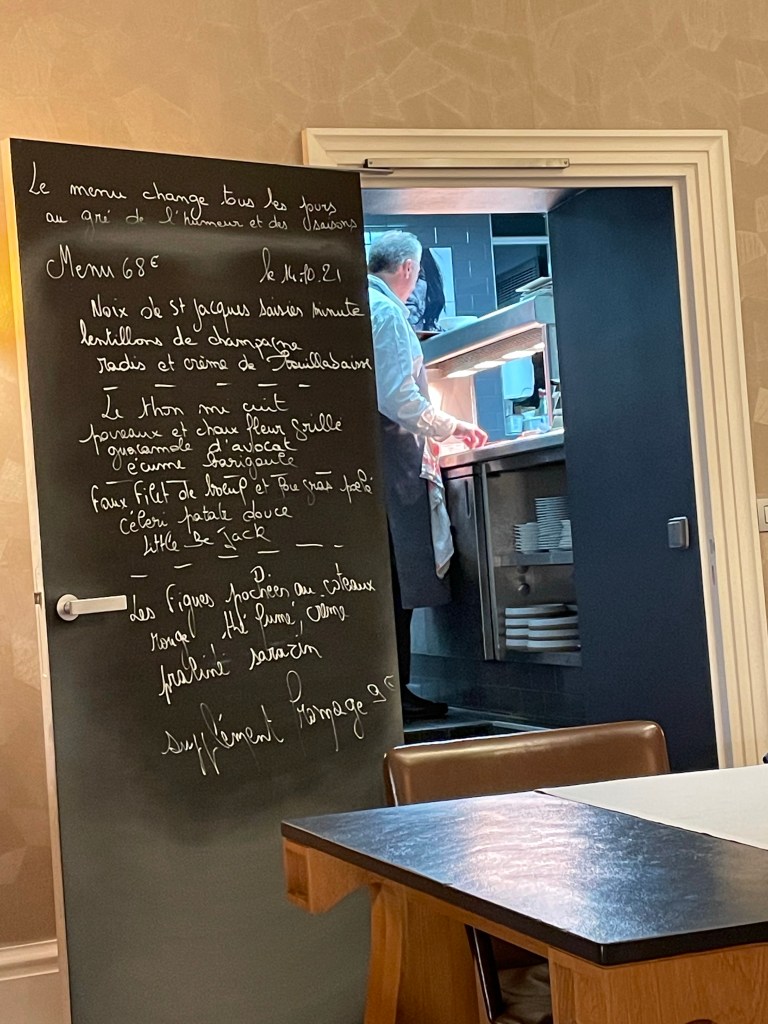 Le menu change tous les jours
au gré de l'humeur et des saisons
Menu 68€ le 14.10.21
Noix de St Jacques saisies minute
lentillons de champagne
radis et crème de Bouillabaisse
Le thon mi cuit
poireaux et choux fleur grillé
guacamole d'avocat
écume barigoule
Faux Filet de boeuf et Foie gras poêlé
Céleri patate douce
Little Jack
Les Figues pochées au côteaux
rouge thé fumé, crème
praliné sarazin
supplément Fromage 9€